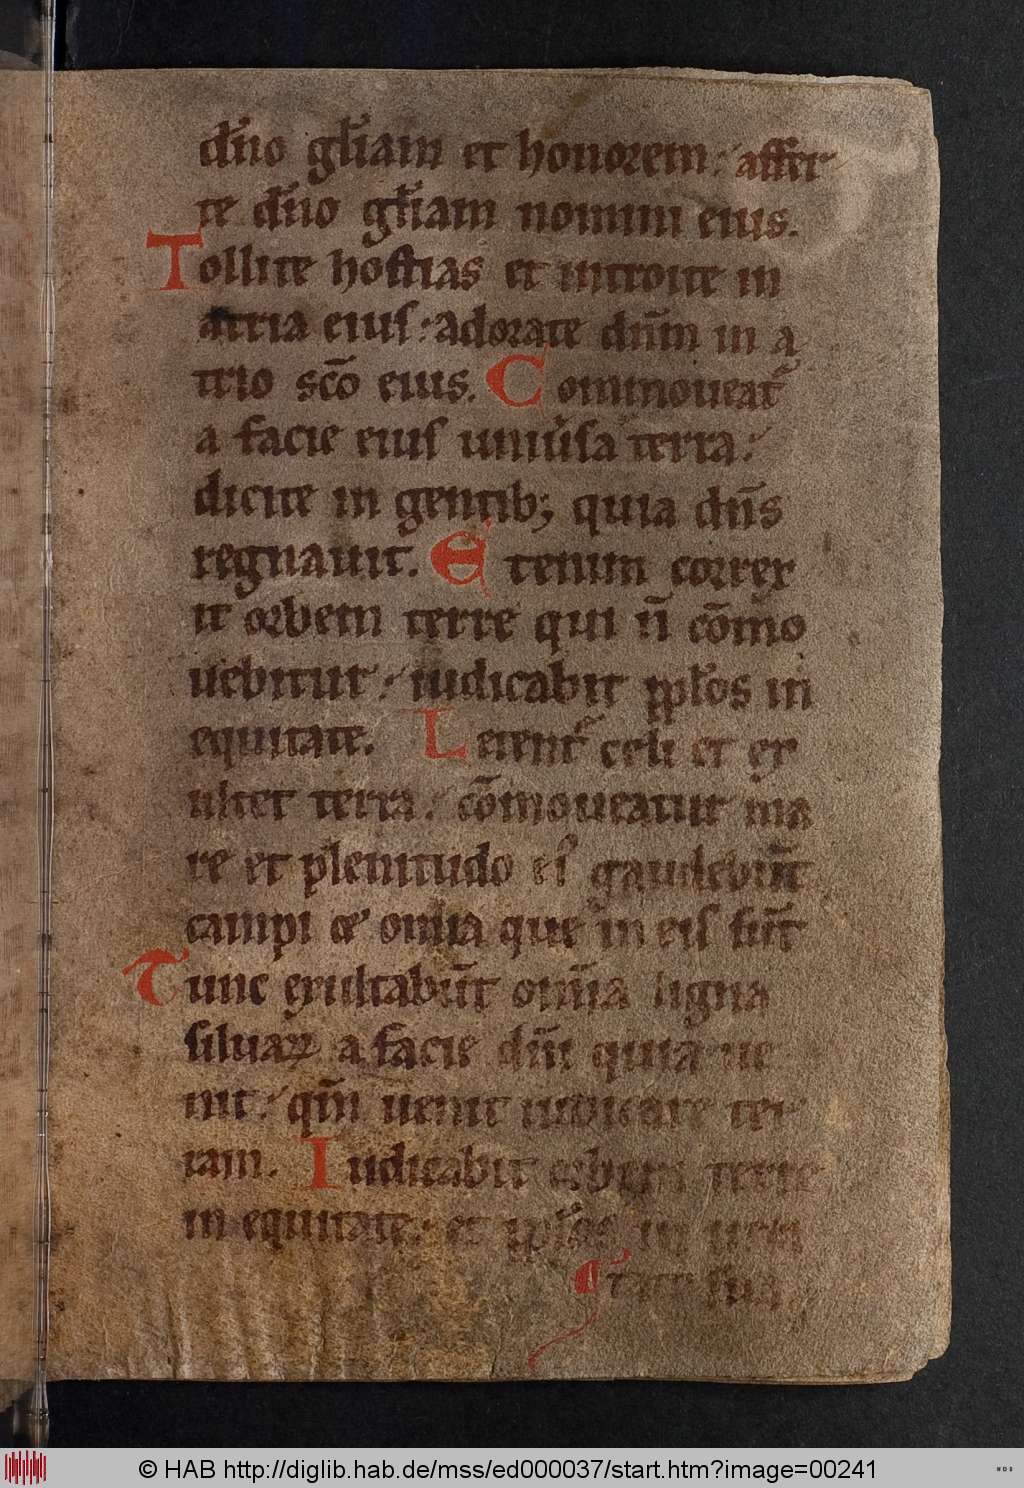 dn̄o gl̄iam et honorem: affer
te dn̄o gl̄iam nomini eius.
Tollite hostias et introite in
atria eius: adorate dn̄m in a
trio sc̄o eius. Com̄moueat᷑
a facie eius uniu̓sa terra:
dicite in gentib; quia dn̄s
regnauit. Etenim correx
it orbem terre qui n̄ cōmo
uebitur: iudicabit ppl̄os in
equitate. Letent᷑ celi et ex
ultet terra: cōmoueatur ma
re et plenitudo ei᷒ gaudebūt
campi et om̄ia que in eis sūt
Tunc exultabūt om̄ia ligna
siluaꝝ a facie dn̄i quia ue
nit: qm̄ uenit iudicare ter
ram. Iudicabit orbem terre
in equitate: et ppl̄os in ueri
tate sua
© HAB http://diglib.hab.de/mss/ed000037/start.htm?image=00241